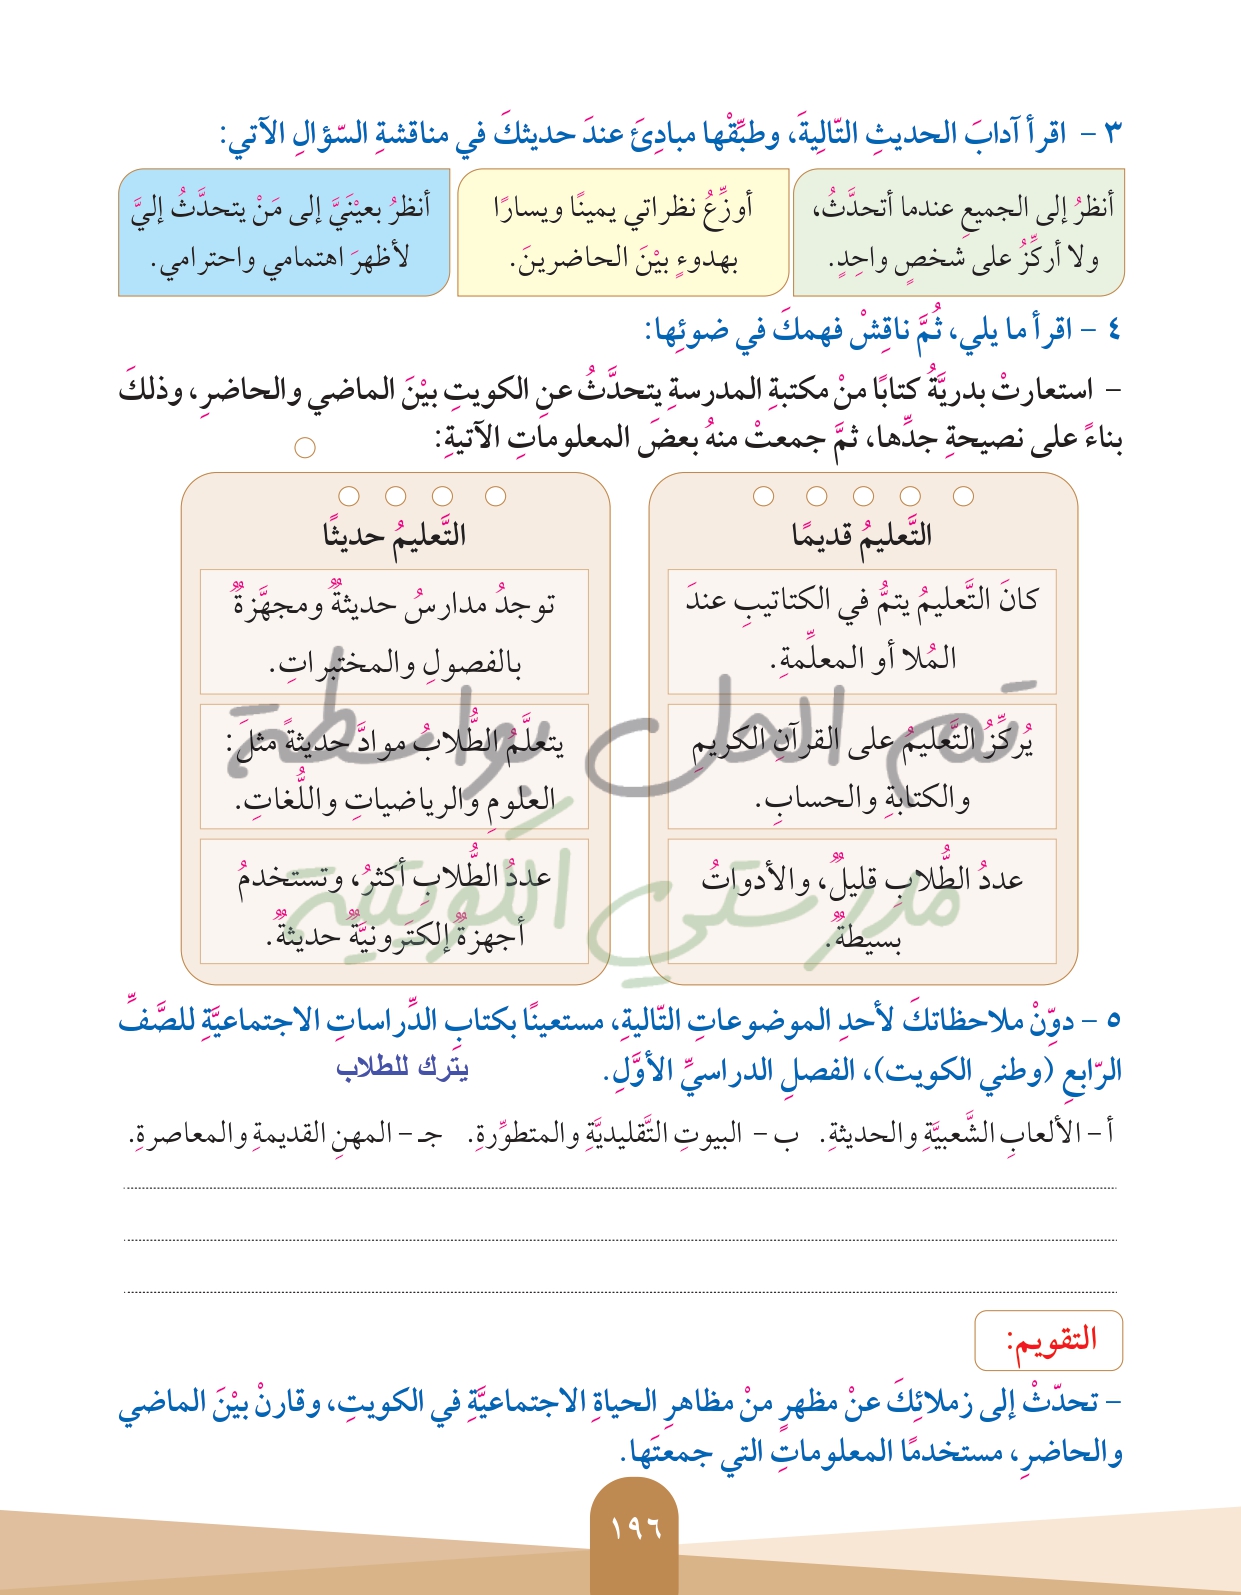 ٣ - اقرأ آدابَ الحديثِ التّاليةَ، وطبِّقْها مبادِئَ عندَ حديثكَ في مناقشةِ السّؤالِ الآتي:
أنظرُ إلى الجميعِ عندما أتحدَّثُ،
ولا أركِّزُ على شخصٍ واحِدٍ.
أوزِّعُ نظراتي يمينًا ويسارًا
بهدوءٍ بيْنَ الحاضرينَ.
أنظرُ بعيْنَيَّ إلى مَنْ يتحدَّثُ إليَّ
لأظهرَ اهتمامي واحترامي.
٤ - اقرأ ما يلي، ثُمَّ ناقِشْ فهمكَ في ضوئِها:
- استعارتْ بدريَّةُ كتابًا منْ مكتبةِ المدرسةِ يتحدَّثُ عنِ الكويتِ بيْنَ الماضي والحاضرِ، وذلكَ
بناءً على نصيحةِ جدِّها، ثمَّ جمعتْ منهُ بعضَ المعلوماتِ الآتيةِ:
التَّعليمُ قديمًا
كانَ التَّعليمُ يتمُّ في الكتاتيبِ عندَ
المُلا أو المعلِّمةِ.
يُركِّزُ التَّعليمُ على القرآنِ الكريمِ
والكتابةِ والحسابِ.
عددُ الطُّلابِ قليلٌ، والأدواتُ
بسيطةٌ.
التَّعليمُ حديثًا
توجدُ مدارسُ حديثةٌ ومجهَّزةٌ
بالفصولِ والمختبراتِ.
يتعلَّمُ الطُّلابُ موادَّ حديثةً مثلَ:
العلومِ والرياضياتِ واللُّغاتِ.
عددُ الطُّلابِ أكثرُ، وتستخدمُ
أجهزةٌ إلكترونيَّةٌ حديثةٌ.
تم الحل بواسطة
مدرستي الكويتية
٥ - دوِّنْ ملاحظاتكَ لأحدِ الموضوعاتِ التّاليةِ، مستعينًا بكتابِ الدِّراساتِ الاجتماعيَّةِ للصَّفِّ
الرّابعِ (وطني الكويت)، الفصلِ الدراسيِّ الأوَّلِ. يترك للطلاب
أ - الألعابِ الشَّعبيَّةِ والحديثةِ. ب - البيوتِ التَّقليديَّةِ والمتطوِّرةِ. جـ - المهنِ القديمةِ والمعاصرةِ.
التقويم:
- تحدّثْ إلى زملائِكَ عنْ مظهرٍ منْ مظاهرِ الحياةِ الاجتماعيَّةِ في الكويتِ، وقارنْ بيْنَ الماضي
والحاضرِ، مستخدمًا المعلوماتِ التي جمعتَها.
١٩٦